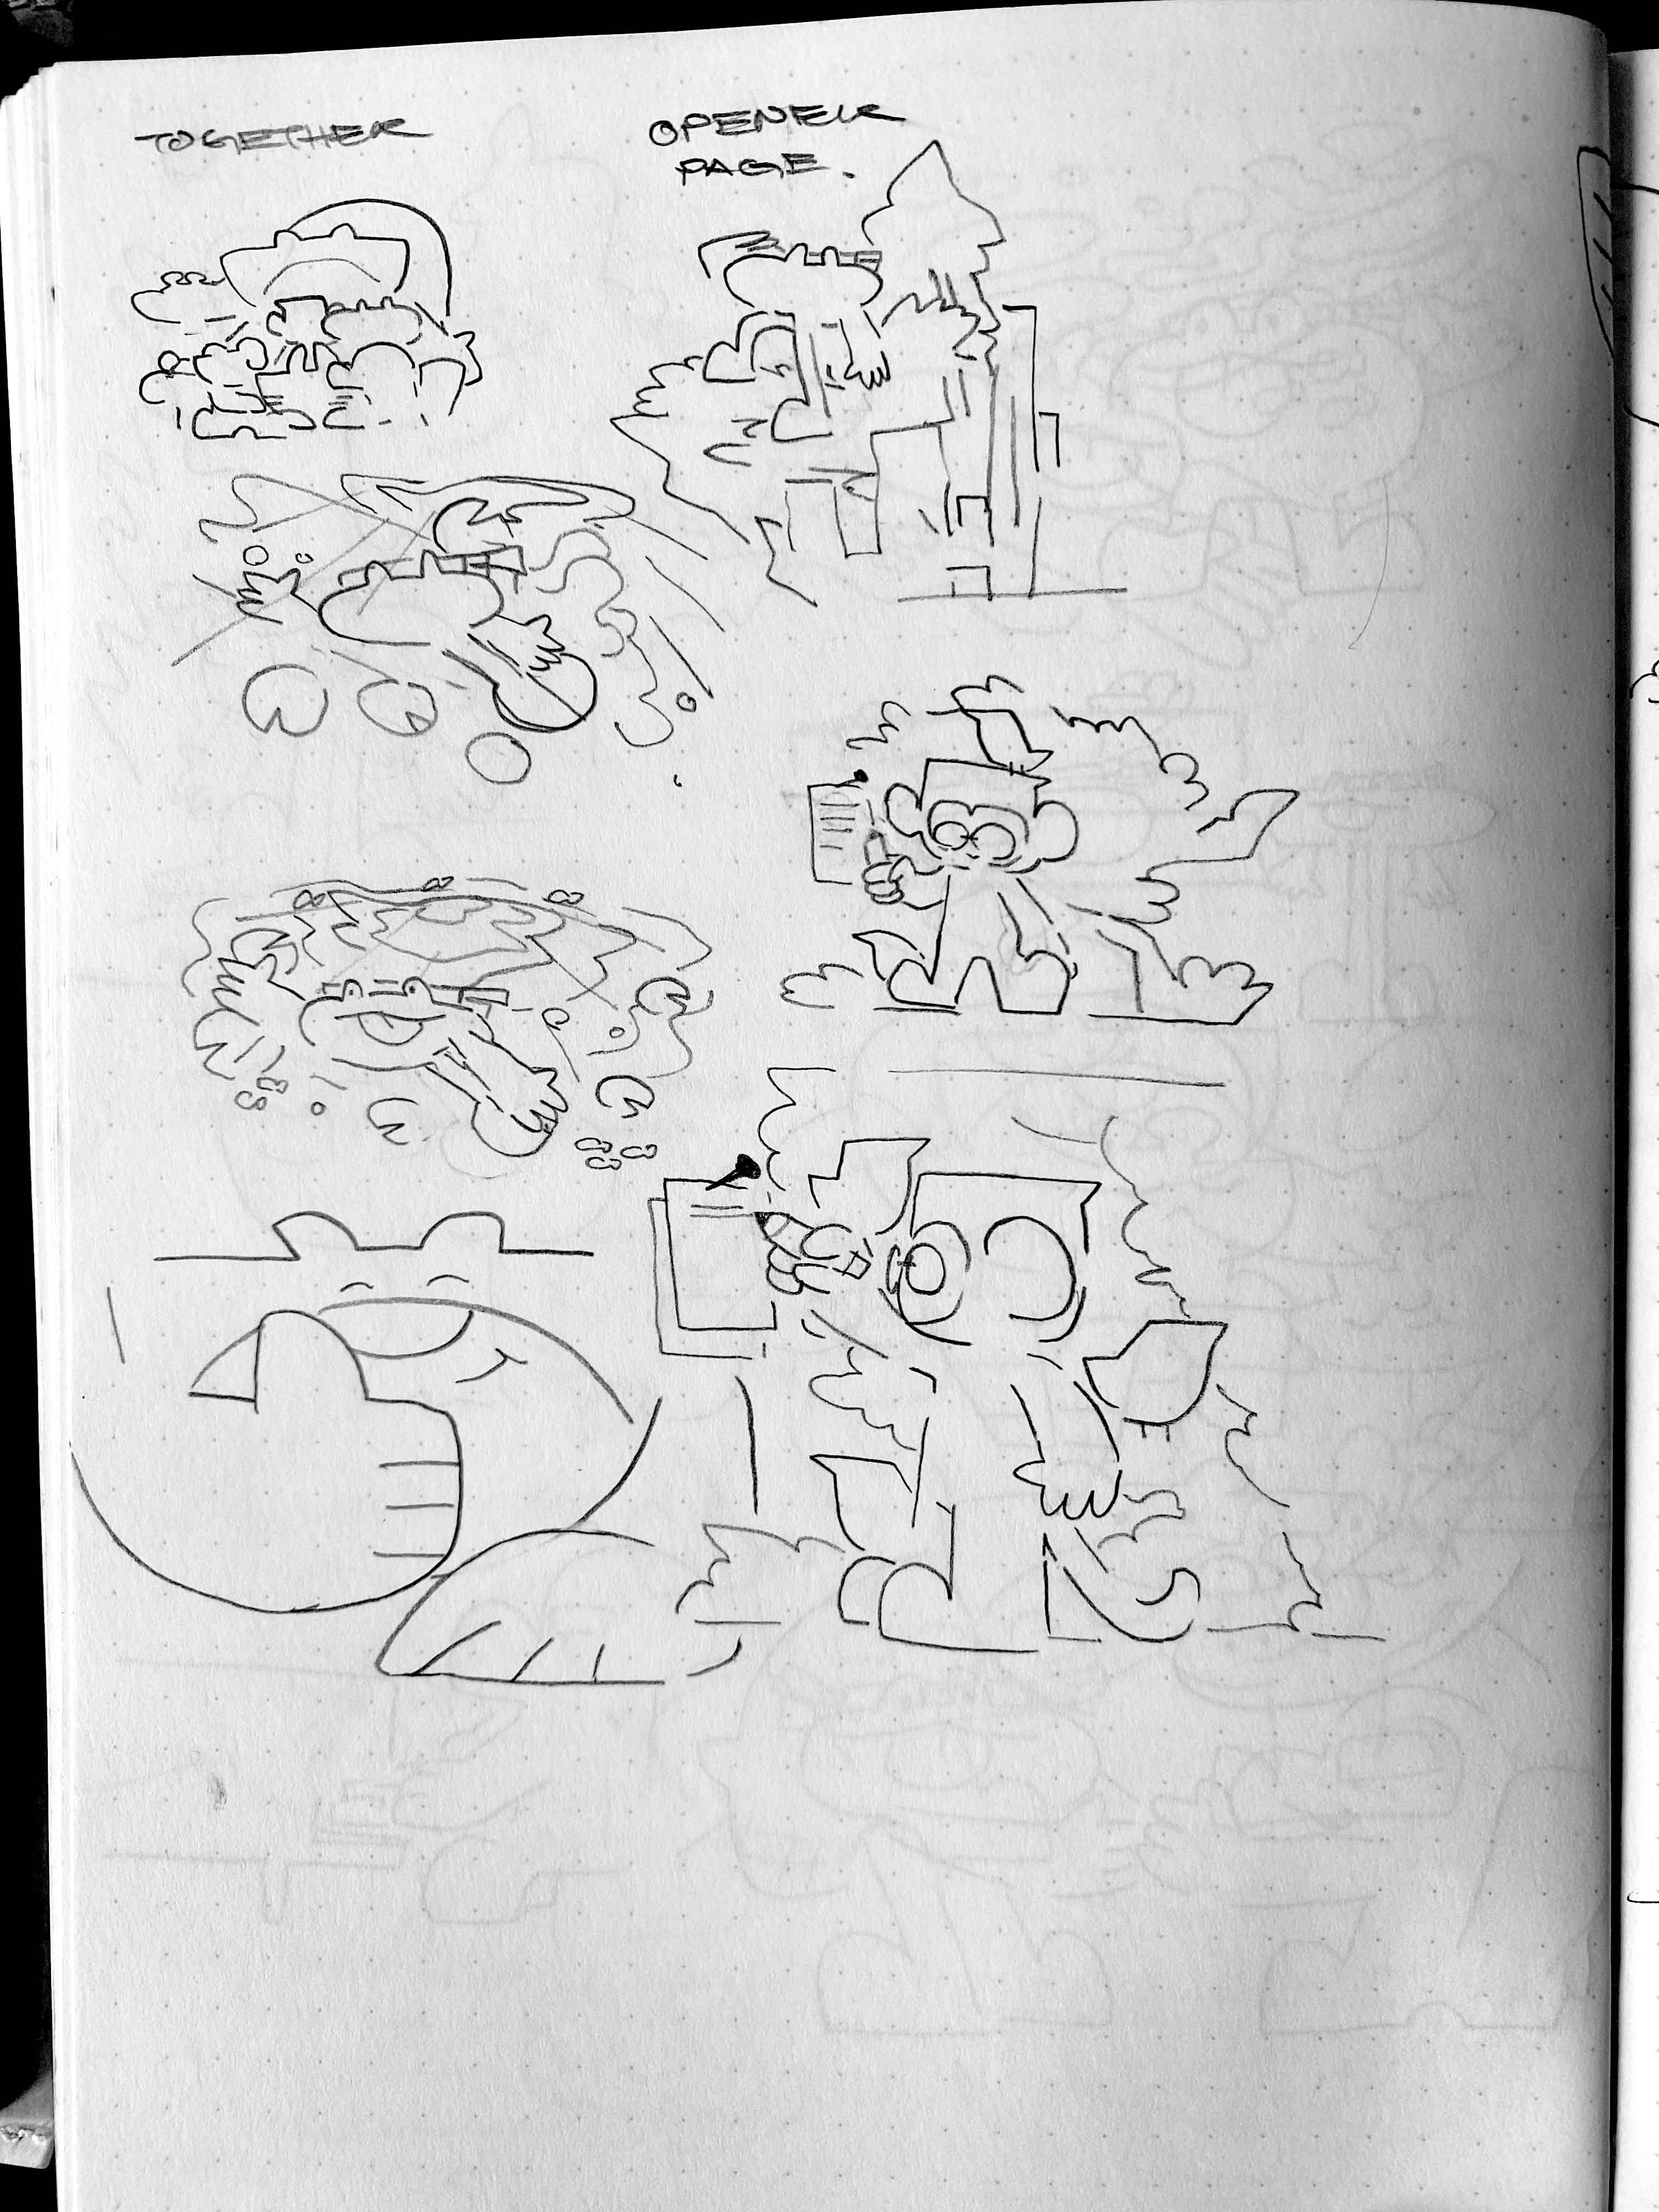 TOGETHER
OPENER
PAGE.